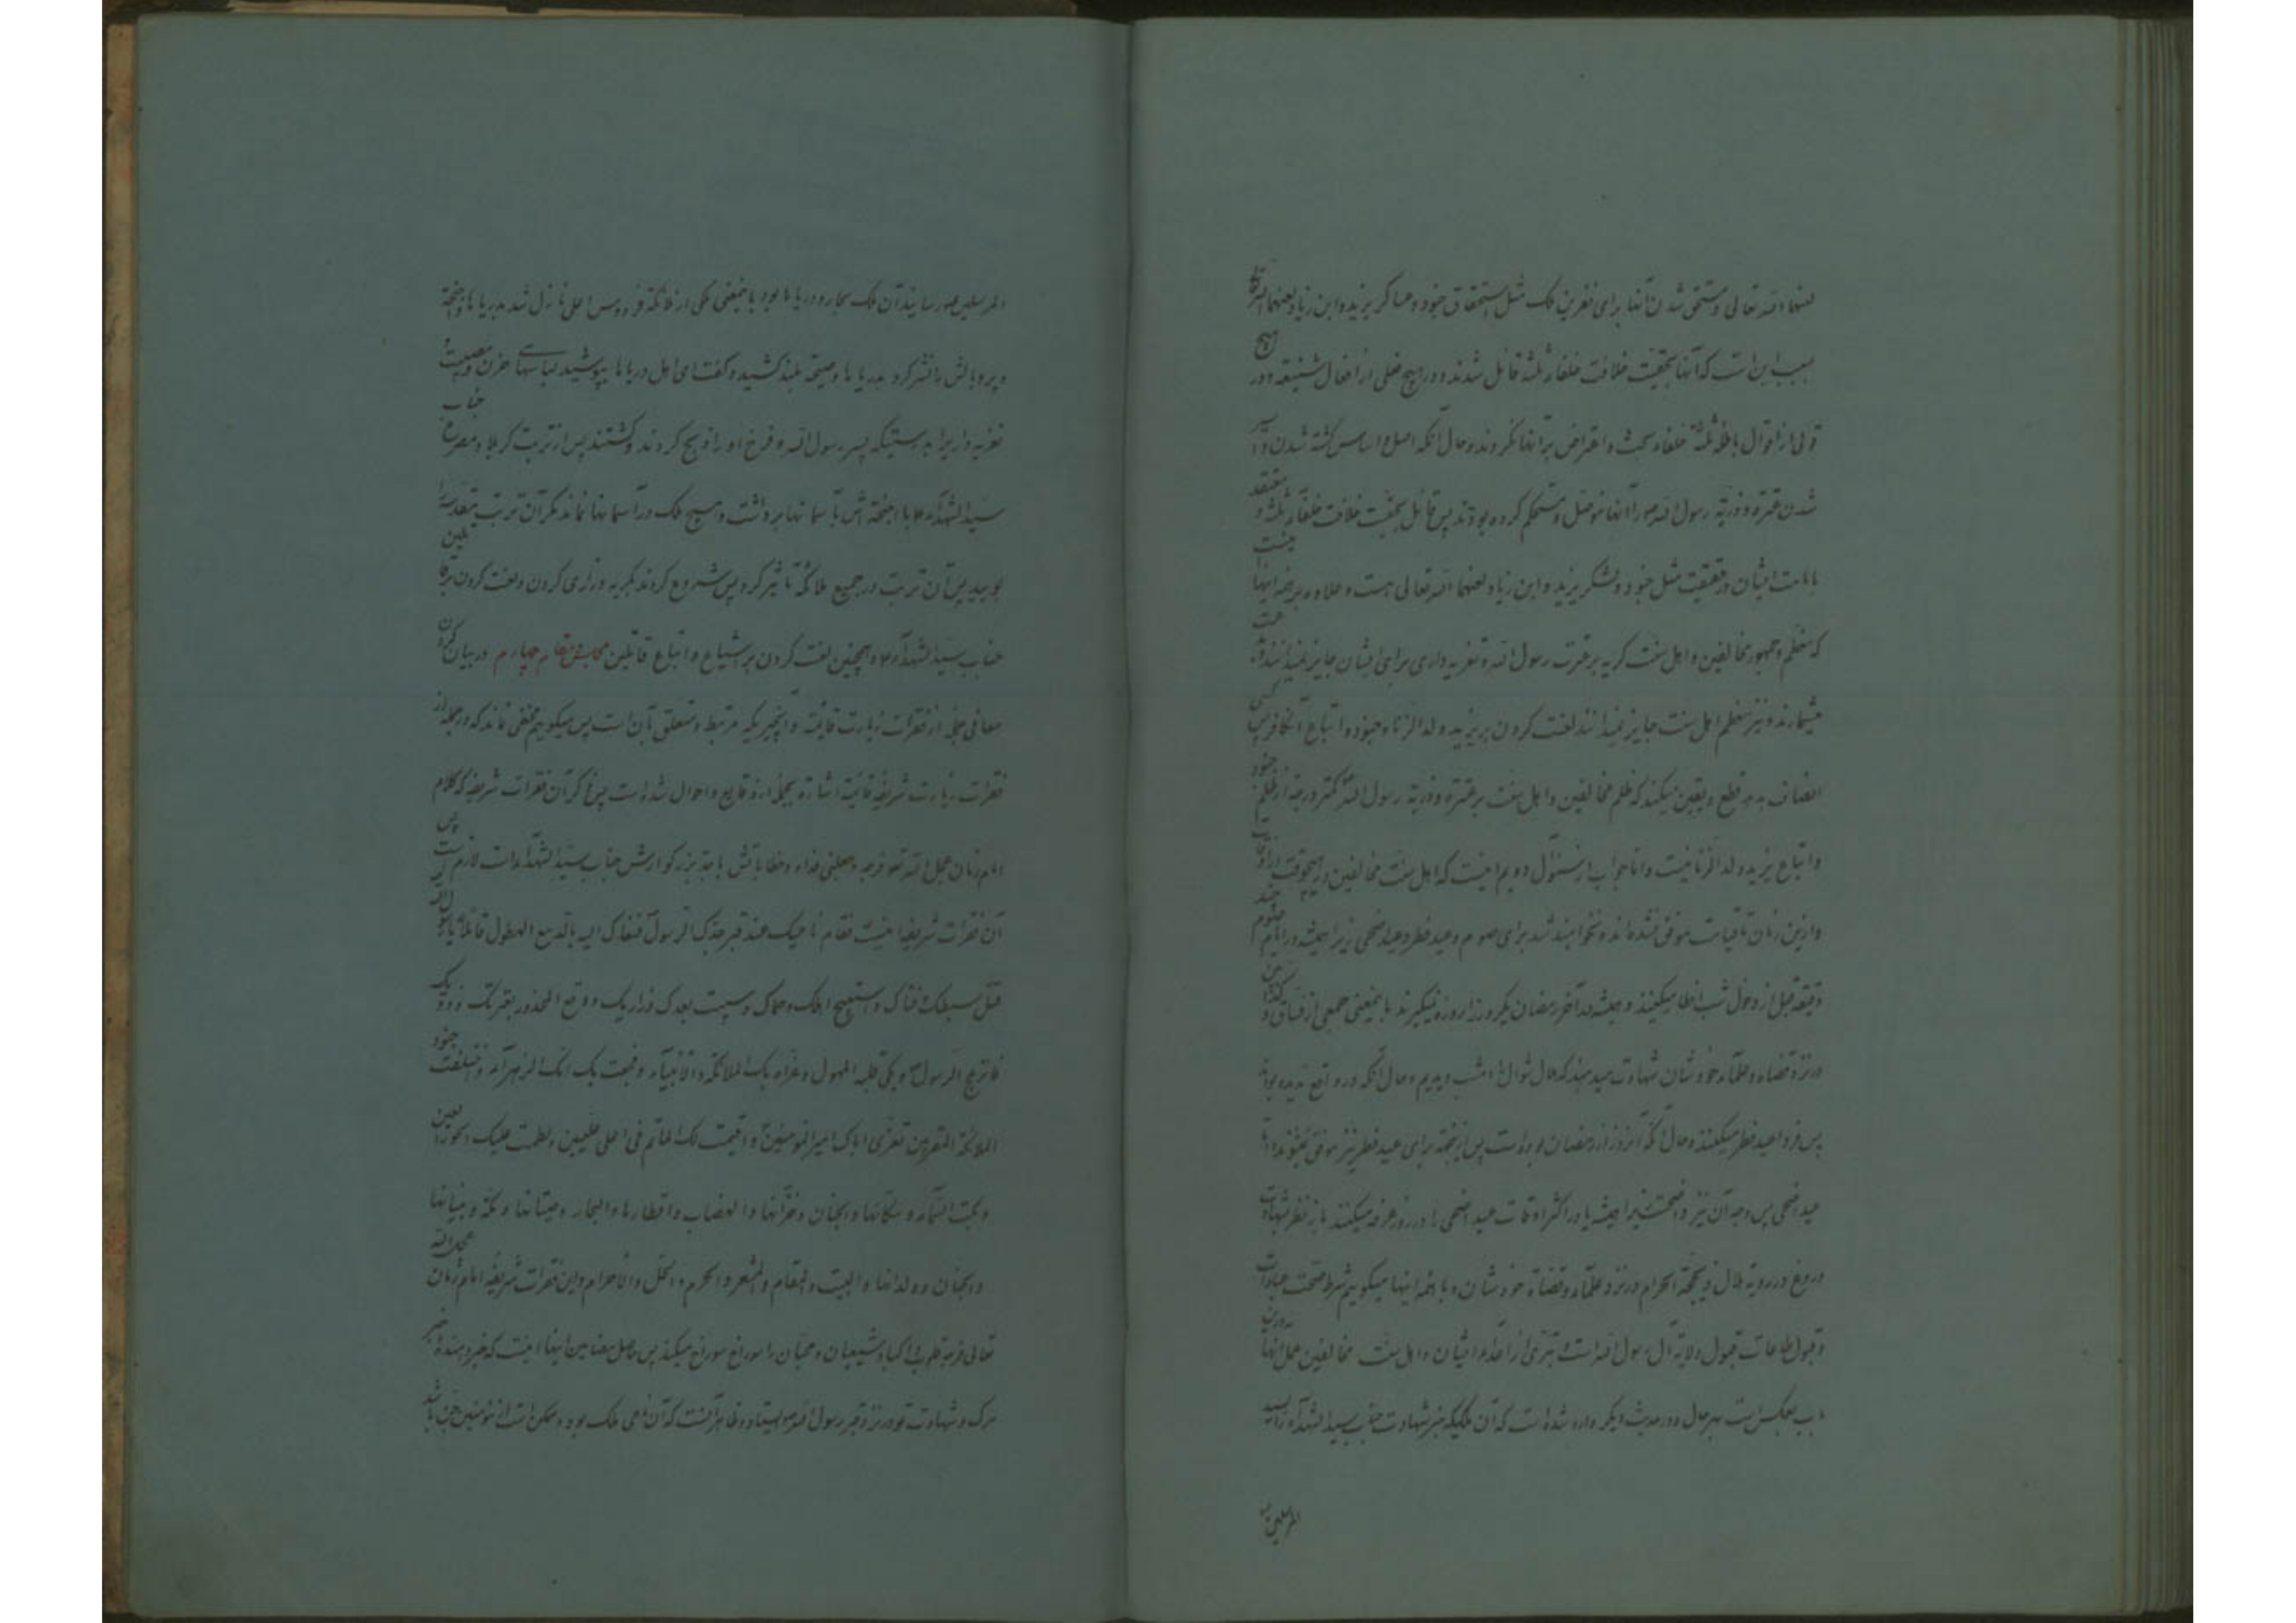 لعنهما الله تعالی و مستحق شدن آنها برای نفرین ملک مثل استحقاق جنود و عساکر یزید و ابن زیاد لعنهما الله تعالی
بسبب این است که آنها بحقیت خلافت خلفاء ثلثه قائل شدند و در هیچ فعلی از افعال شنیعه و در هیچ
قولی از اقوال باطله ثلثه خلفاء بحث و اعتراض بر آنها نکردند و حال آنکه اصل و اساس کشته شدن و
شدن عترة و ذریة رسول الله ص را آنها مؤصل و مستحکم کرده بودند پس قائل بحقیت خلافت خلفاء ثلثه و معتقد
بامامت ایشان در حقیقت مثل جنود و لشکر یزید و ابن زیاد لعنهما الله تعالی هست و علاوه بر همه اینها
که معظم و جمهور مخالفین و اهل سنت گریه بر عترت رسول الله و تعزیه داری برای ایشان جایز نمیدانند
میشمارند و نیز معظم اهل سنت جایز نمیدانند لعنت کردن بر یزید ولد الزناء و جنود و اتباع آن کافر پس کسی
انصاف بدهد قطع و یقین میکند که ظلم مخالفین و اهل سنت بر عترة و ذریة رسول الله کمتر در رتبه از ظلم جنود
و اتباع یزید ولد الزنا نیست و اما جواب از سئوال دویم اینست که اهل سنت مخالفین در هیچوقت
و از این زمان تا قیامت موفق نشده اند و نخواهند شد برای صوم و عید فطر و عید اضحی زیرا همیشه در ایام صوم
دقیقه قبل از دخول شب افطار میکنند و همیشه در آخر رمضان یکروز را روزه نمیگیرند باینمعنی جمعی از فساق
در نزد قضاة و علماء خودشان شهادت میدهند که هلال شوال را امشب دیدیم و حال آنکه در واقع ندیده بودند
پس فردا عید فطر میکنند و حال آنکه آنروز از رمضان بوده است پس از اینجهة برای عید فطر نیز موفق نمیشوند و اما
عید اضحی پس وجه آن نیز واضحست زیرا همیشه یا در اکثر اوقات عید اضحی را در روز عرفه میکنند باز نظر بشهادت
دروغ در رویة هلال ذیحجة الحرام در نزد علماء و قضاة خودشان و با همه اینها میگوییم شرط صحت عبادات
و قبول طاعات قبول ولایة آل رسول الله است و تبری از اعداء ایشان و اهل سنت مخالفین عمل آنها
باب بعکس است بهر حال و در حدیث دیگر وارد شده است که آن ملکیکه خبر شهادت جناب سید الشهداء را بسید
المرسلین
المرسلین ص رسانید آن ملک بحار و دریاها بود باینمعنی ملکی از ملائکه فردوس اعلی نازل شد بدریاها و اجنحة
و پر و بالش را نشر کرد بدریاها و صیحة بلند کشید و گفت ای اهل دریاها بپوشید لباسهای حزن و مصیبت و
تعزیه داریرا بدرستیکه پسر رسول الله و فرخ او را ذبح کردند و کشتند پس از تربت کربلا و مصرع جناب
سید الشهداء ع با اجنحة اش بآسمانها برداشت و هیچ ملک در آسمانها نماند مگر آن تربت مقدسه را
بویید پس آن تربت در جمیع ملائکه تأثیر کرد پس شروع کردند بگریه و زاری کردن و لعنت کردن بر قاتلین
جناب سید الشهداء ع و همچنین لعنت کردن بر اشیاع و اتباع قاتلین مجلس مقام چهارم در بیان کردن
معانی جملة از فقرات زیارت قائمیه و آنچیزیکه مرتبط و متعلق بآن است پس میگویم مخفی نماند که در جمله از
فقرات زیارت شریفه قائمیه اشاره بجمله از وقایع و احوال شده است پس ذکر آن فقرات شریفه که کلام
امام زمان عجل الله تعالی فرجه و جعلنی فداه و خطاباتش با جد بزرگوارش جناب سید الشهداء است لازم است پس
آن فقرات شریفه اینست فقام ناعیک عند قبر جدک الرسول فنعاک الیه بالدمع الهطول قائلا یا رسول الله
قتل سبطک و فتاک و استبیح اهلک و حماک و سبیت بعدک ذراریک و وقع المحذور بعترتک و ذویک
فانزعج الرسول و بکی قلبه المهول و عزاه بک الملائکة و الانبیاء و فجعت بک امک الزهراء و اختلفت جنود
الملائکة المقربین تعزی اباک امیر المؤمنین و اقیمت لک المآتم فی اعلی علیین و لطمت علیک الحور العین
و بکت السماء و سکانها و الجنان و خزانها و الهضاب و اقطارها و البحار و حیتانها و مکة و بنیانها
و الجنان و ولدانها و البیت و المقام و المشعر و الحرم و الحل و الاحرام و این فقرات شریفه امام زمان عجل الله
تعالی فرجه قلوب و اکباد شیعیان و محبان را سوراخ سوراخ میکند پس حاصل مضامین اینها اینست که خبر دهنده خبر
مرک و شهادت تو در نزد قبر رسول الله ص ایستاد و ظاهر آنست که آن ناعی ملک بود و ممکن است از مؤمنین جن باشد